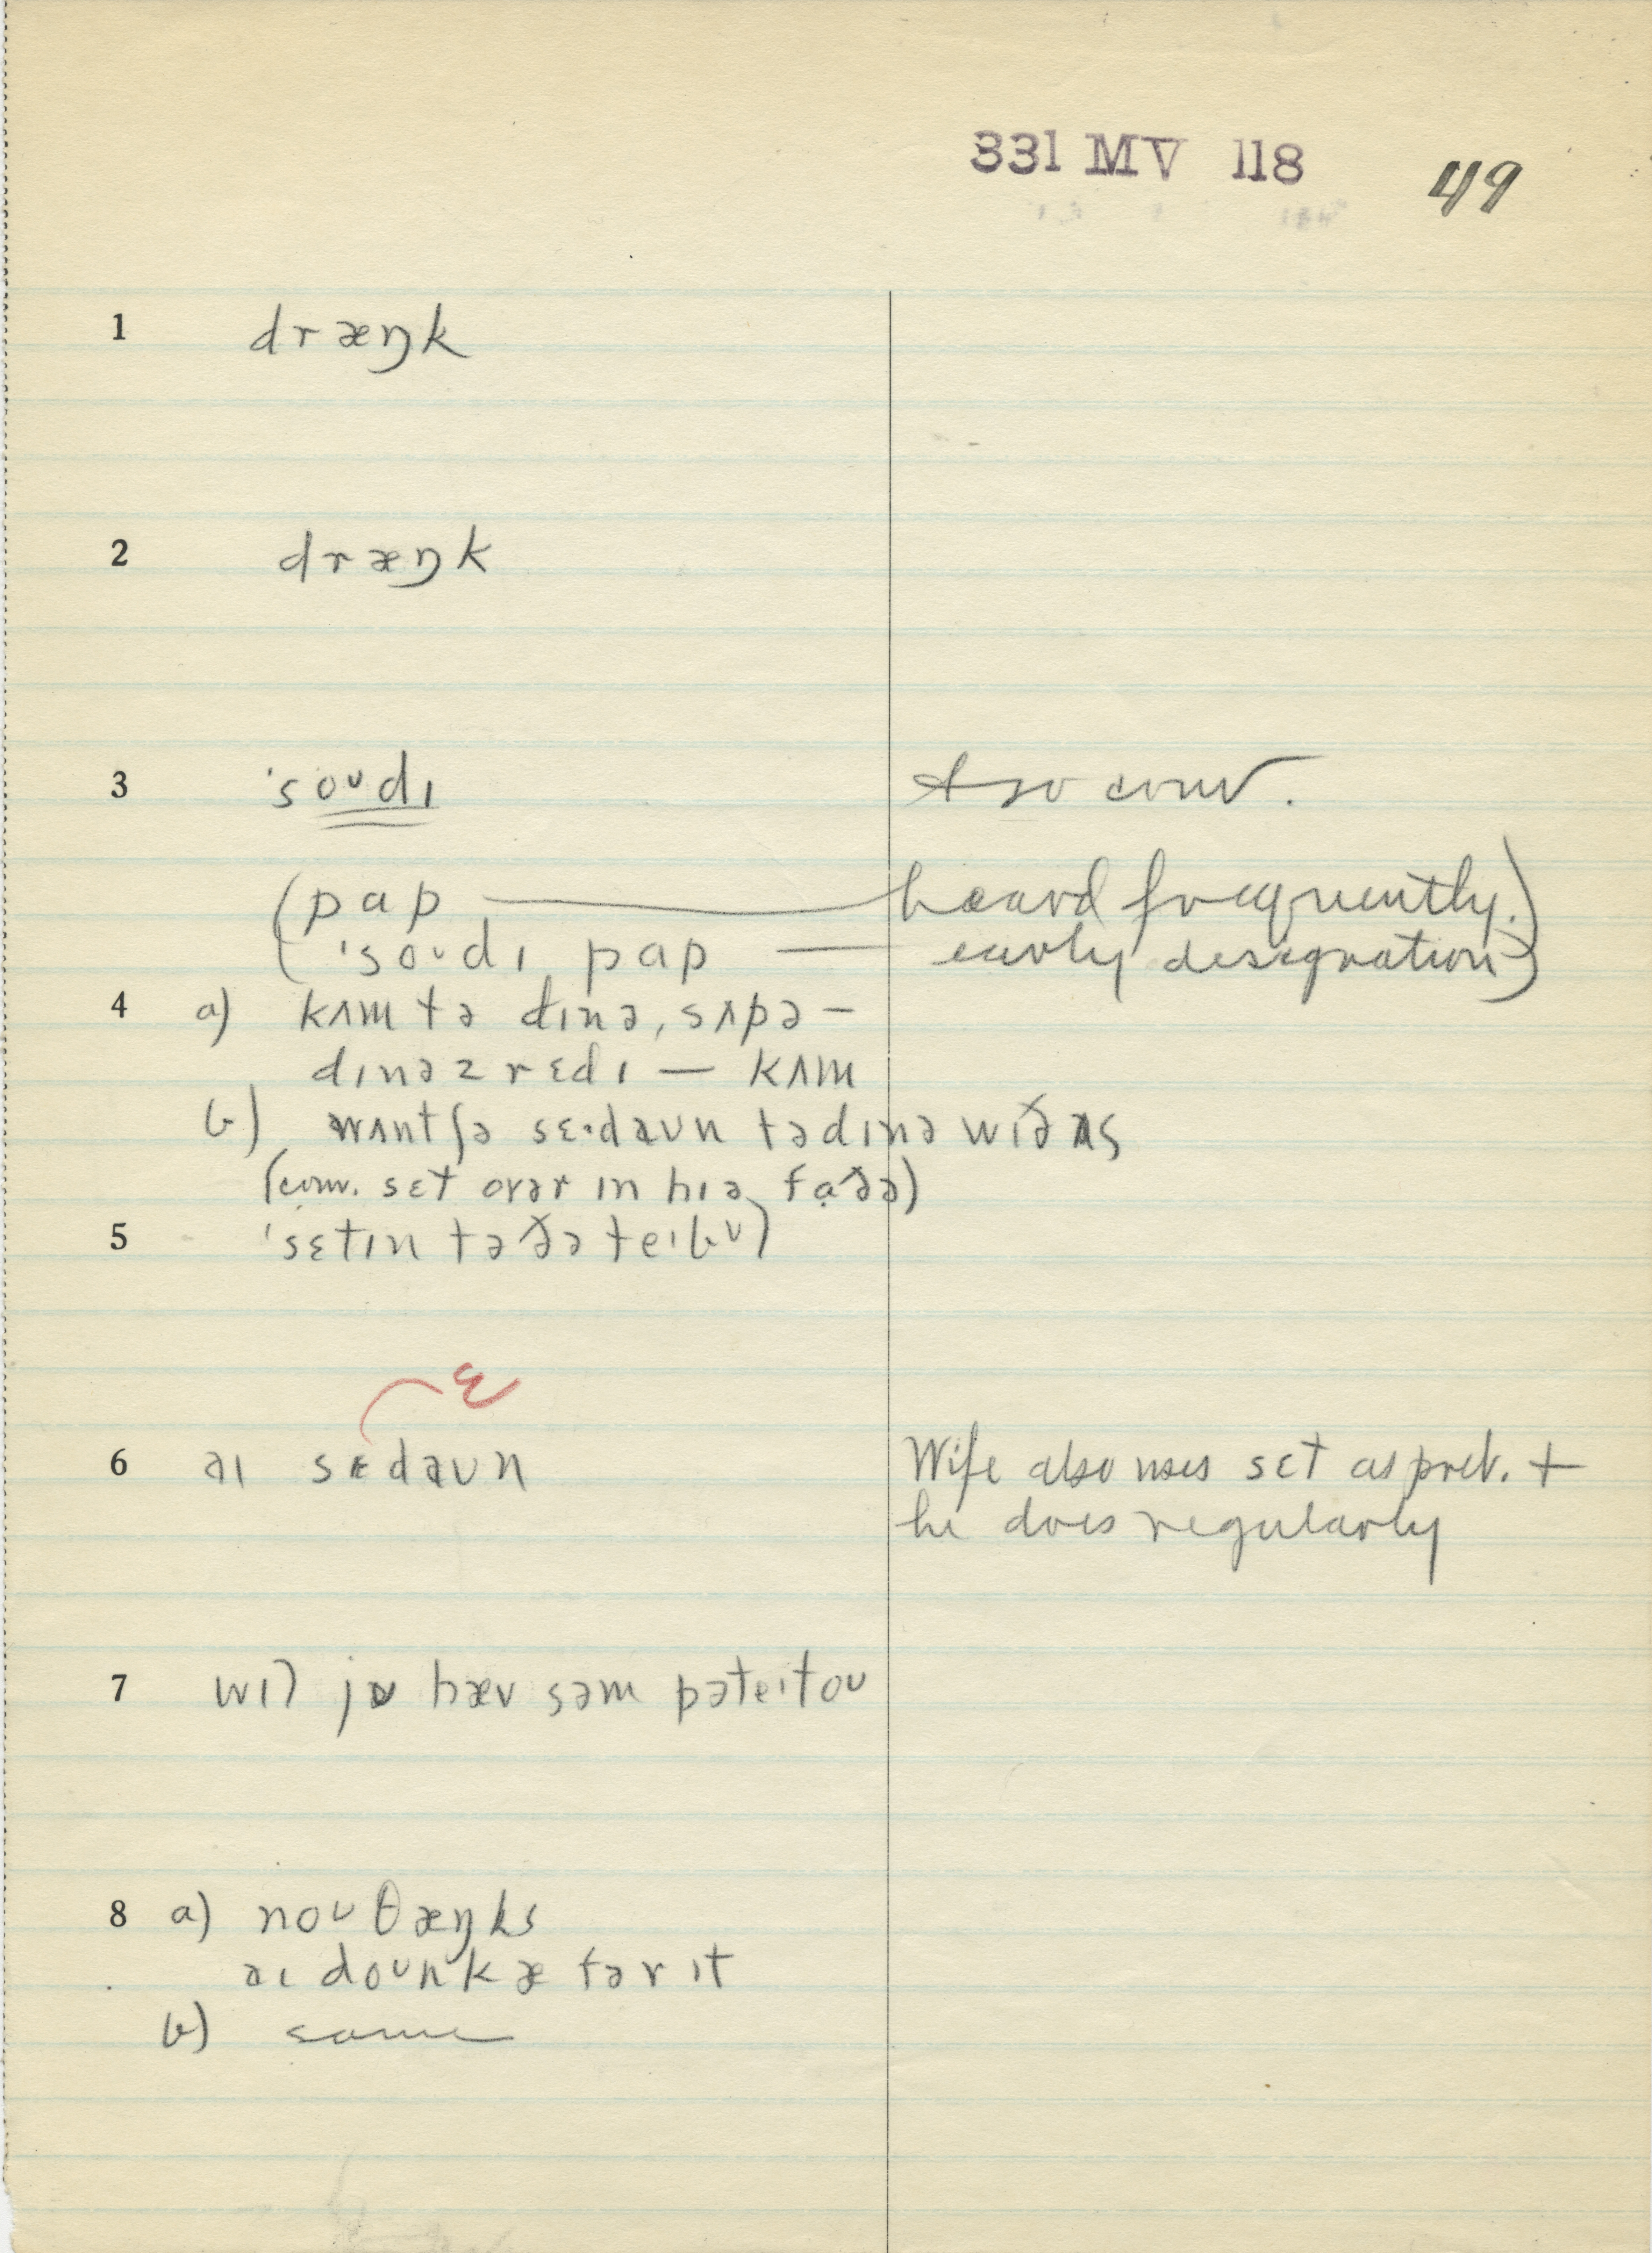 331 MV 118 49
1 dræŋk
2 dræŋk
3 ˈsoʊdɪ & so conv.
(pap — heard frequently.
ˈsoʊdɪ pap — early designation)
4 a) kʌm tə dɪnə, sʌpə –
dɪnəz rɛdɪ — kʌm
b) wʌntʃə sɛ·daʊn tə dɪnə wɪð ʌs
(conv. sɛt ovər ɪn hɪə, fɑðə)
5 ˈsɛtɪn tə ðə teɪbʊl
ɛ
6 aɪ sɛdaʊn Wife also uses sɛt as pret. +
he does regularly
7 wɪl jʊ hæv səm pəteɪtoʊ
8 a) noʊ θæŋks
aɪ doʊn kæ fər ɪt
b) same